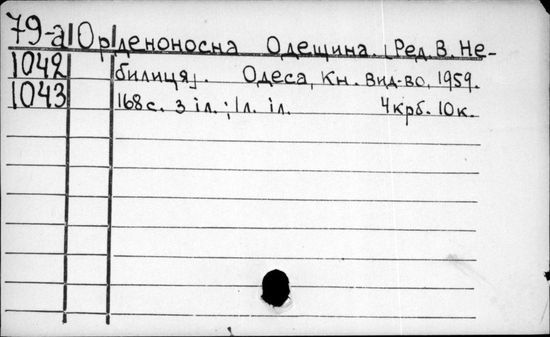 79-а Орденоносна Одещина. [Ред. В. Не-
1042 билиця]. Одеса, Кн. вид-во, 1959.
1043 168 с. з іл.; 1 л. іл. 4 крб. 10 к.